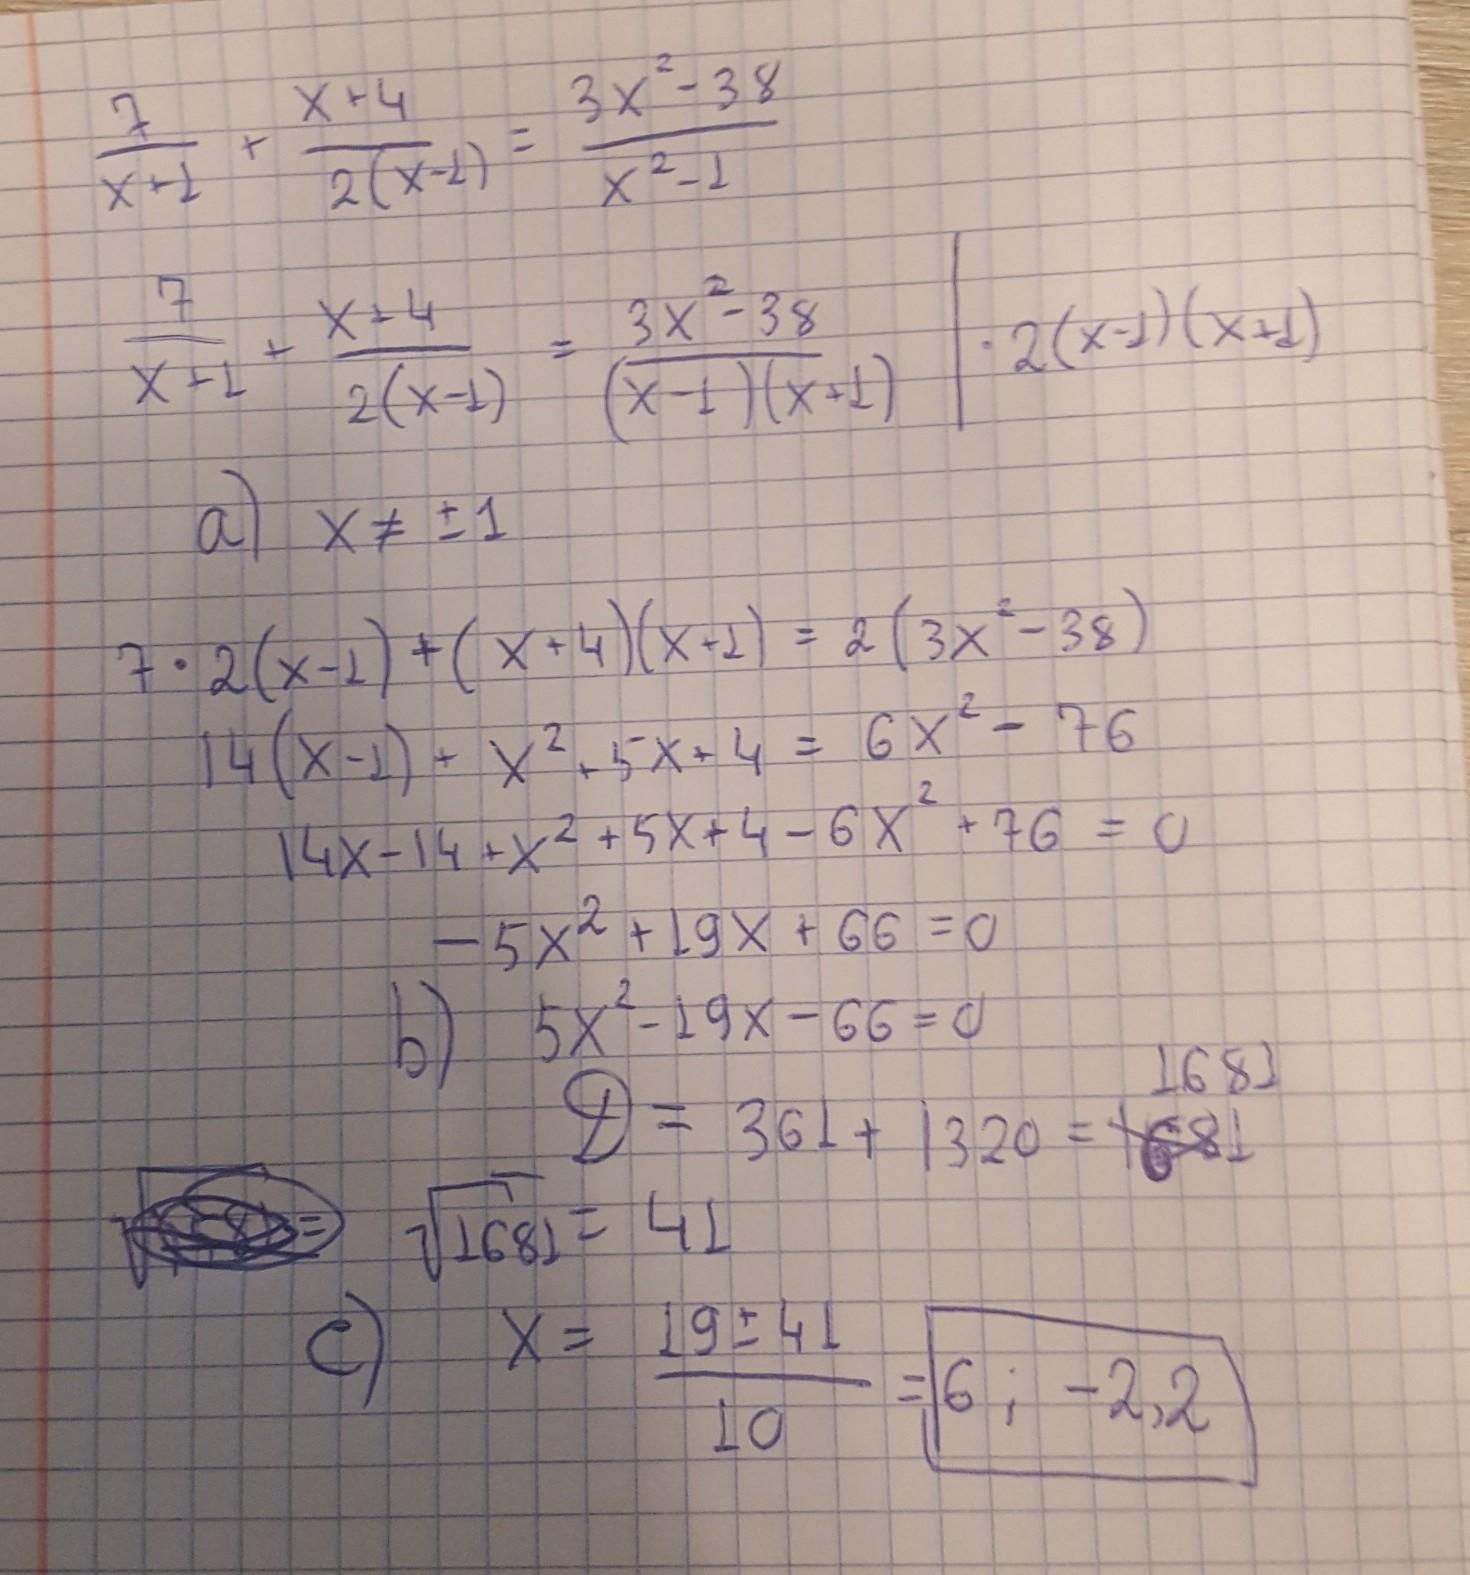 7/(x+1) + (x+4)/(2(x-1)) = (3x²-38)/(x²-1)
7/(x+1) + (x+4)/(2(x-1)) = (3x²-38)/((x-1)(x+1)) | · 2(x-1)(x+1)
a) x ≠ ±1
7·2(x-1) + (x+4)(x+1) = 2(3x²-38)
14(x-1) + x²+5x+4 = 6x² - 76
14x-14+x²+5x+4-6x²+76 = 0
-5x²+19x+66=0
b) 5x²-19x-66=0
D = 361+1320 = 1681
√1681 = 41
c) x = (19±41)/10 = 6; -2,2